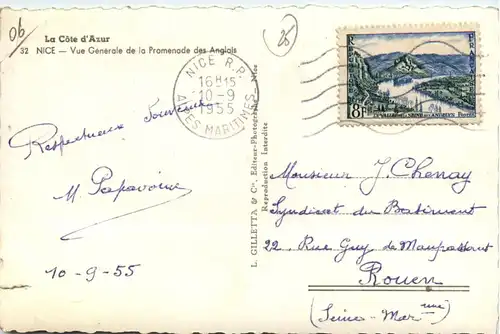 06
La Côte d'Azur
32 NICE — Vue Générale de la Promenade des Anglais
25
NICE R.P.
16H15
10-9
1955
ALPES MARITIMES
FRANCE
8F
Respectueux Souvenirs
M. Papavoine
10-9-55
L. GILLETTA & Cie, Editeur-Photographe - Nice
Reproduction Interdite
Monsieur J. Chenay
Syndicat du Batiment
22, Rue Guy de Maupassant
Rouen
(Seine-Marme)